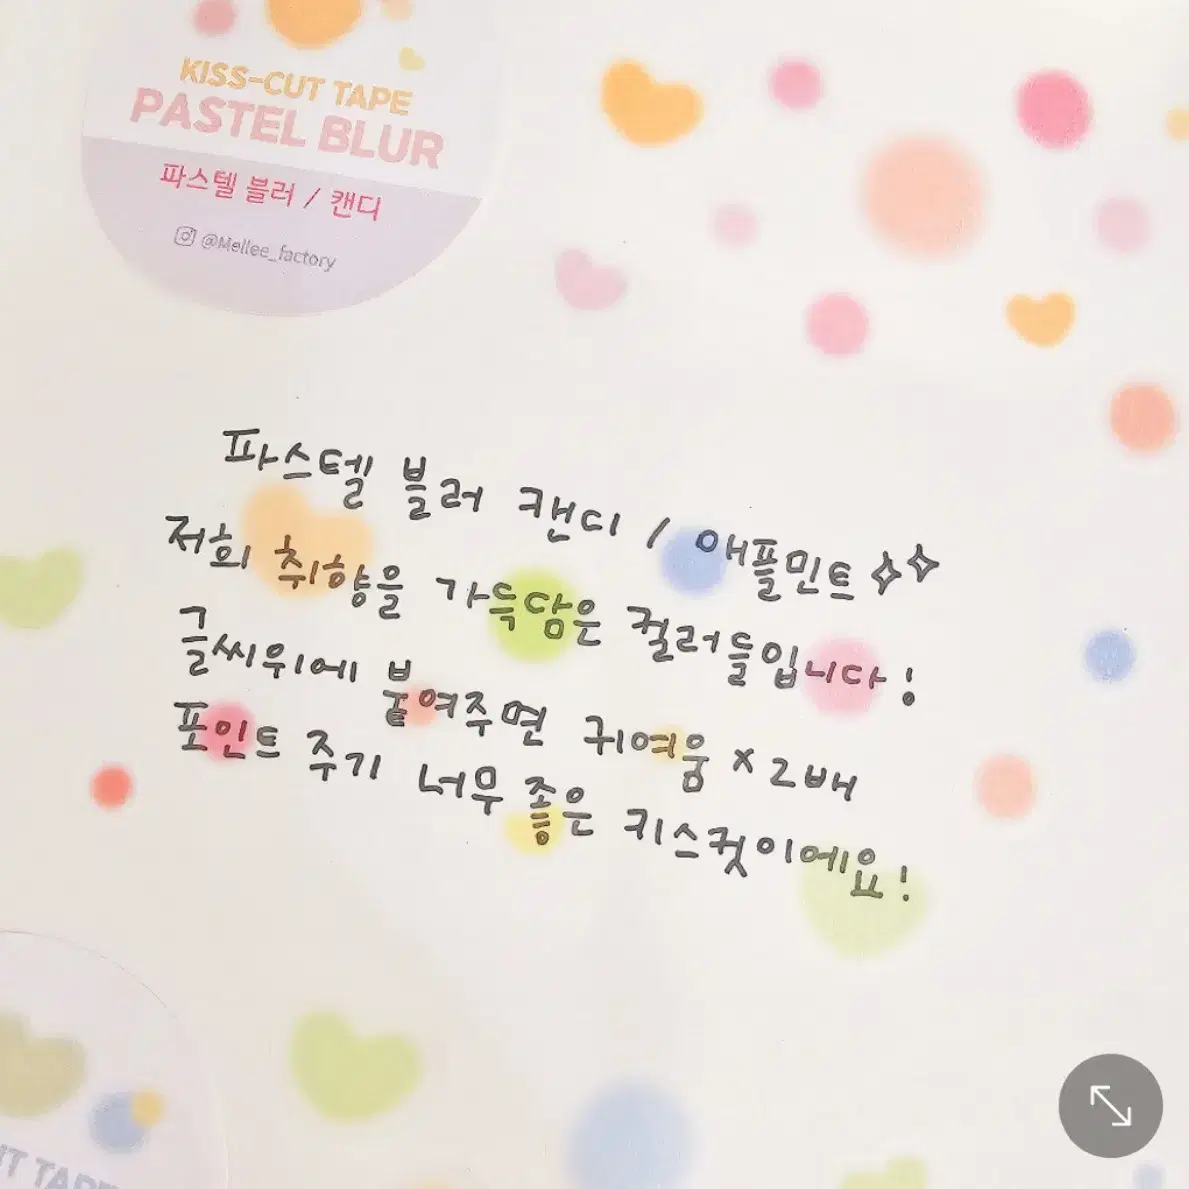 KISS-CUT TAPE
PASTEL BLUR
파스텔 블러 / 캔디
@Mellee_factory
파스텔 블러 캔디 / 애플민트
저희 취향을 가득담은 컬러들입니다!
글씨위에 붙여주면 귀여움 x 2배
포인트 주기 너무 좋은 키스컷이에요!